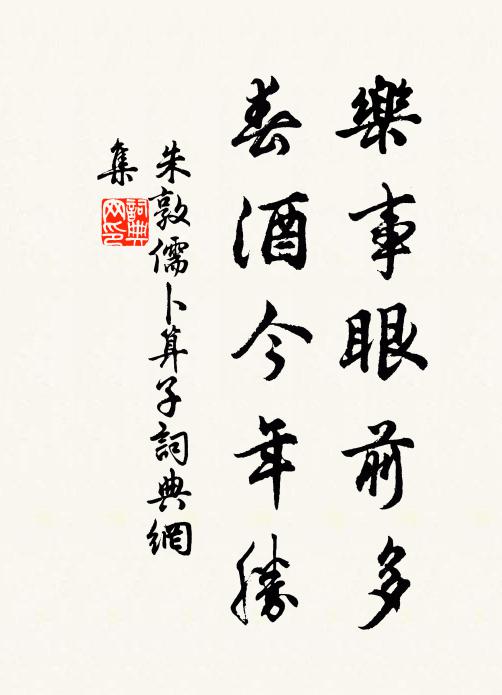 樂事眼前多
春酒今年勝
朱敦儒卜算子詞典網
集
詞典網印